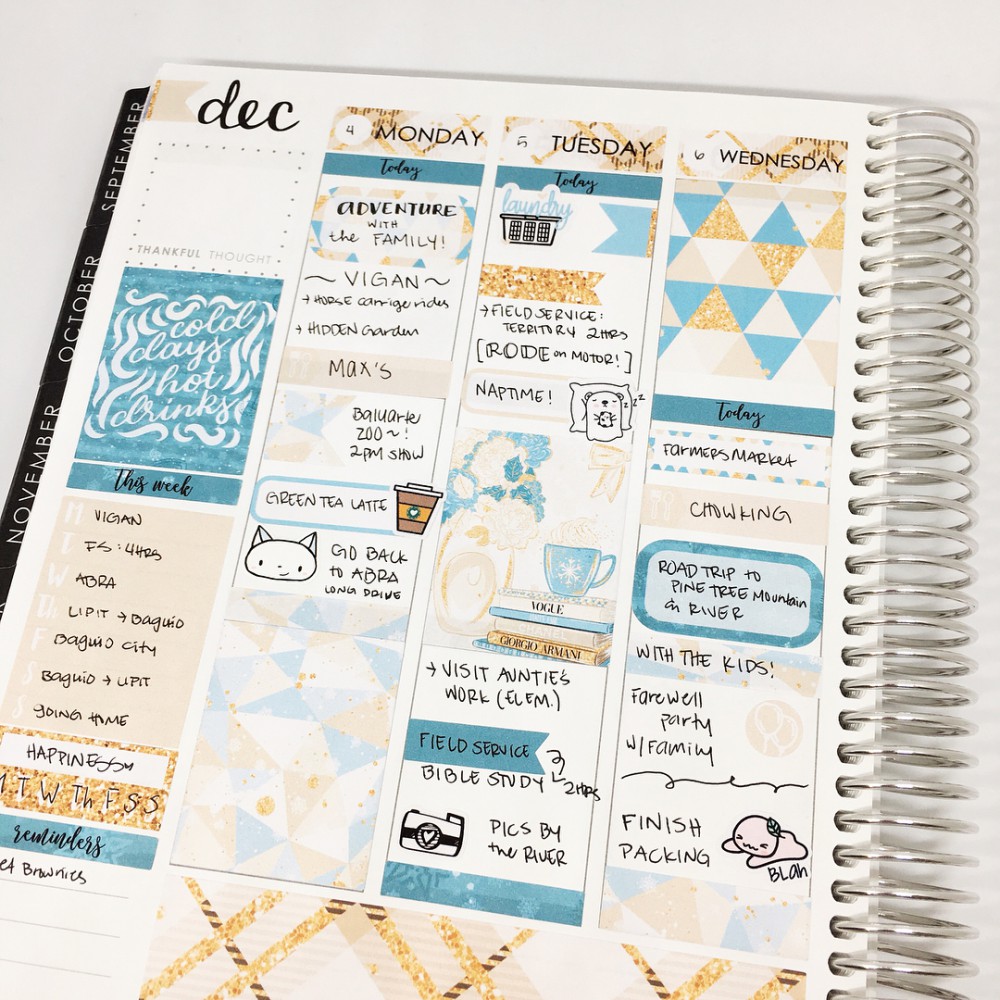 SEPTEMBER
OCTOBER
NOVEMBER
dec
THANKFUL THOUGHT
cold
days
hot
drinks
this week
M VIGAN
T FS : 4HRS
W ABRA
Th LIPIT → BAGUIO
F BAGUIO CITY
S BAGUIO → LIPIT
S GOING HOME
HAPPINESS
M T W Th F S S
reminders
Brownies
4 MONDAY
Today
ADVENTURE
WITH
the FAMILY!
~ VIGAN ~
→ HORSE carrige rides
→ HIDDEN Garden
MAX'S
Baluarte
ZOO ~!
2PM SHOW
GREEN TEA LATTE
GO BACK
to ABRA
LONG DRIVE
5 TUESDAY
Today
laundry
→ FIELD SERVICE:
TERRITORY 2HRS
[RODE on MOTOR!]
NAPTIME!
z z z
VOGUE
CHANEL
GIORGIO ARMANI
→ VISIT AUNTIE'S
WORK (ELEM.)
FIELD SERVICE
BIBLE STUDY 2HRS
PICS BY
the RIVER
6 WEDNESDAY
Today
Farmers Market
CHOWKING
ROAD TRIP to
PINE TREE Mountain
& RIVER
WITH THE KIDS!
Farewell
party
W/Family
FINISH
PACKING
BLAh